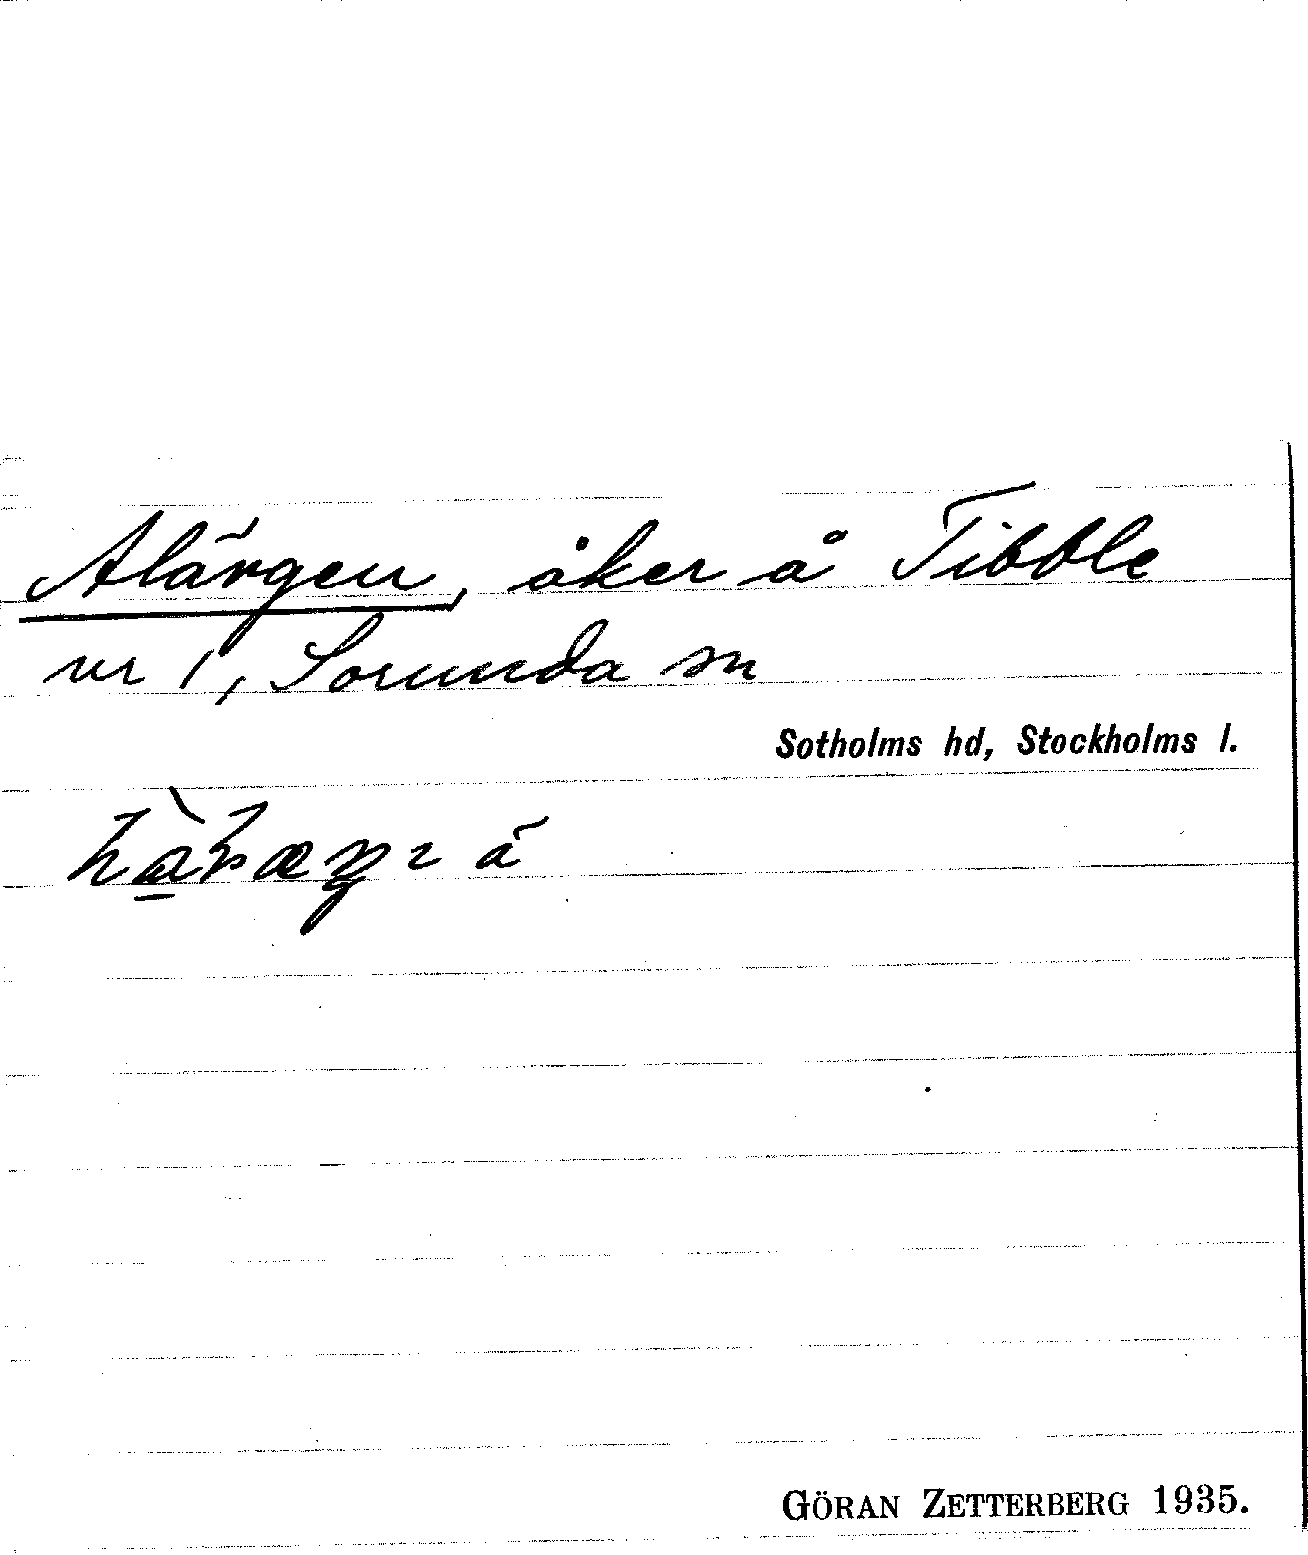 Alärgen, åker å Tibble
nr 1, Sorunda sn
Sotholms hd, Stockholms l.
GÖRAN ZETTERBERG 1935.